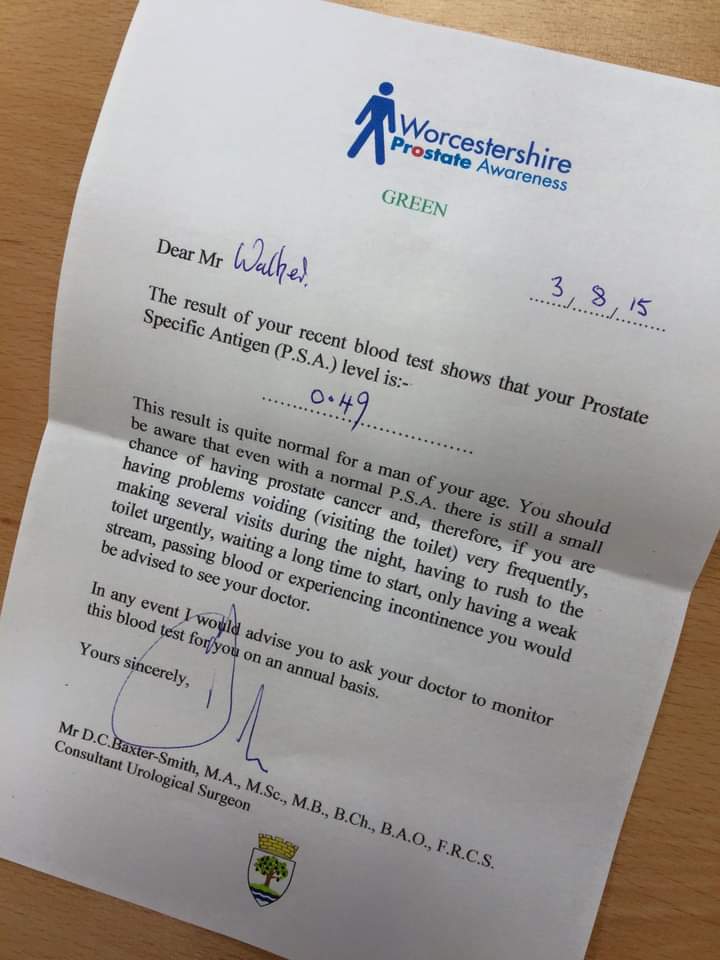 Worcestershire
Prostate Awareness
GREEN
Dear Mr Walker.
3/8/15
The result of your recent blood test shows that your Prostate
Specific Antigen (P.S.A.) level is:-
0.49
This result is quite normal for a man of your age. You should
be aware that even with a normal P.S.A. there is still a small
chance of having prostate cancer and, therefore, if you are
having problems voiding (visiting the toilet) very frequently,
making several visits during the night, having to rush to the
toilet urgently, waiting a long time to start, only having a weak
stream, passing blood or experiencing incontinence you would
be advised to see your doctor.
In any event I would advise you to ask your doctor to monitor
this blood test for you on an annual basis.
Yours sincerely,
Mr D.C.Baxter-Smith, M.A., M.Sc., M.B., B.Ch., B.A.O., F.R.C.S.
Consultant Urological Surgeon